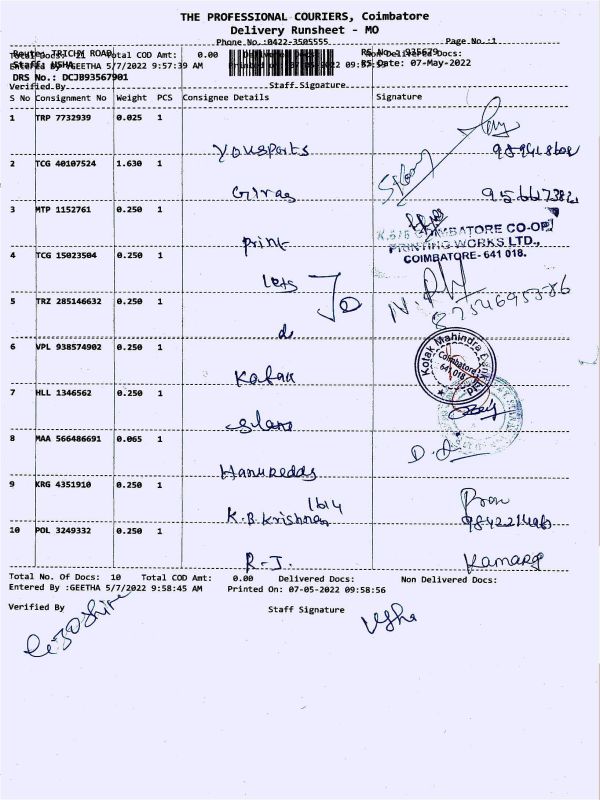 THE PROFESSIONAL COURIERS, Coimbatore
Delivery Runsheet - MO
Phone No.:0422-3505555 Page No.:1
Route: TRICHY ROAD RS No.: 935679
Total Docs: 11 Total COD Amt: 0.00 Delivered Docs: Non Delivered Docs:
Staff: USHA RS Date: 07-May-2022
Entered By :GEETHA 5/7/2022 9:57:39 AM Printed On: 07-05-2022 09:58:55
DRS No.: DCJB93567901
Verified By Staff Signature
S No Consignment No Weight PCS Consignee Details Signature
1 TRP 7732939 0.025 1
Yousparts
2 TCG 40107524 1.630 1
Giras
3 MTP 1152761 0.250 1
print
K.616 COIMBATORE CO-OP.
PRINTING WORKS LTD.,
COIMBATORE- 641 018.
4 TCG 15023504 0.250 1
Lets
8754695586
5 TRZ 285146632 0.250 1
do
6 VPL 938574902 0.250 1
Kotak Mahindra Bank
Coimbatore
641 018
Kotak
7 HLL 1346562 0.250 1
8 MAA 566486691 0.065 1
D.
Hanureddy
9 KRG 4351910 0.250 1
1614
K.B.Krishnan
10 POL 3249332 0.250 1
R-J. Kamaraj
Total No. Of Docs: 10 Total COD Amt: 0.00 Delivered Docs: Non Delivered Docs:
Entered By :GEETHA 5/7/2022 9:58:45 AM Printed On: 07-05-2022 09:58:56
Verified By Staff Signature
Usha